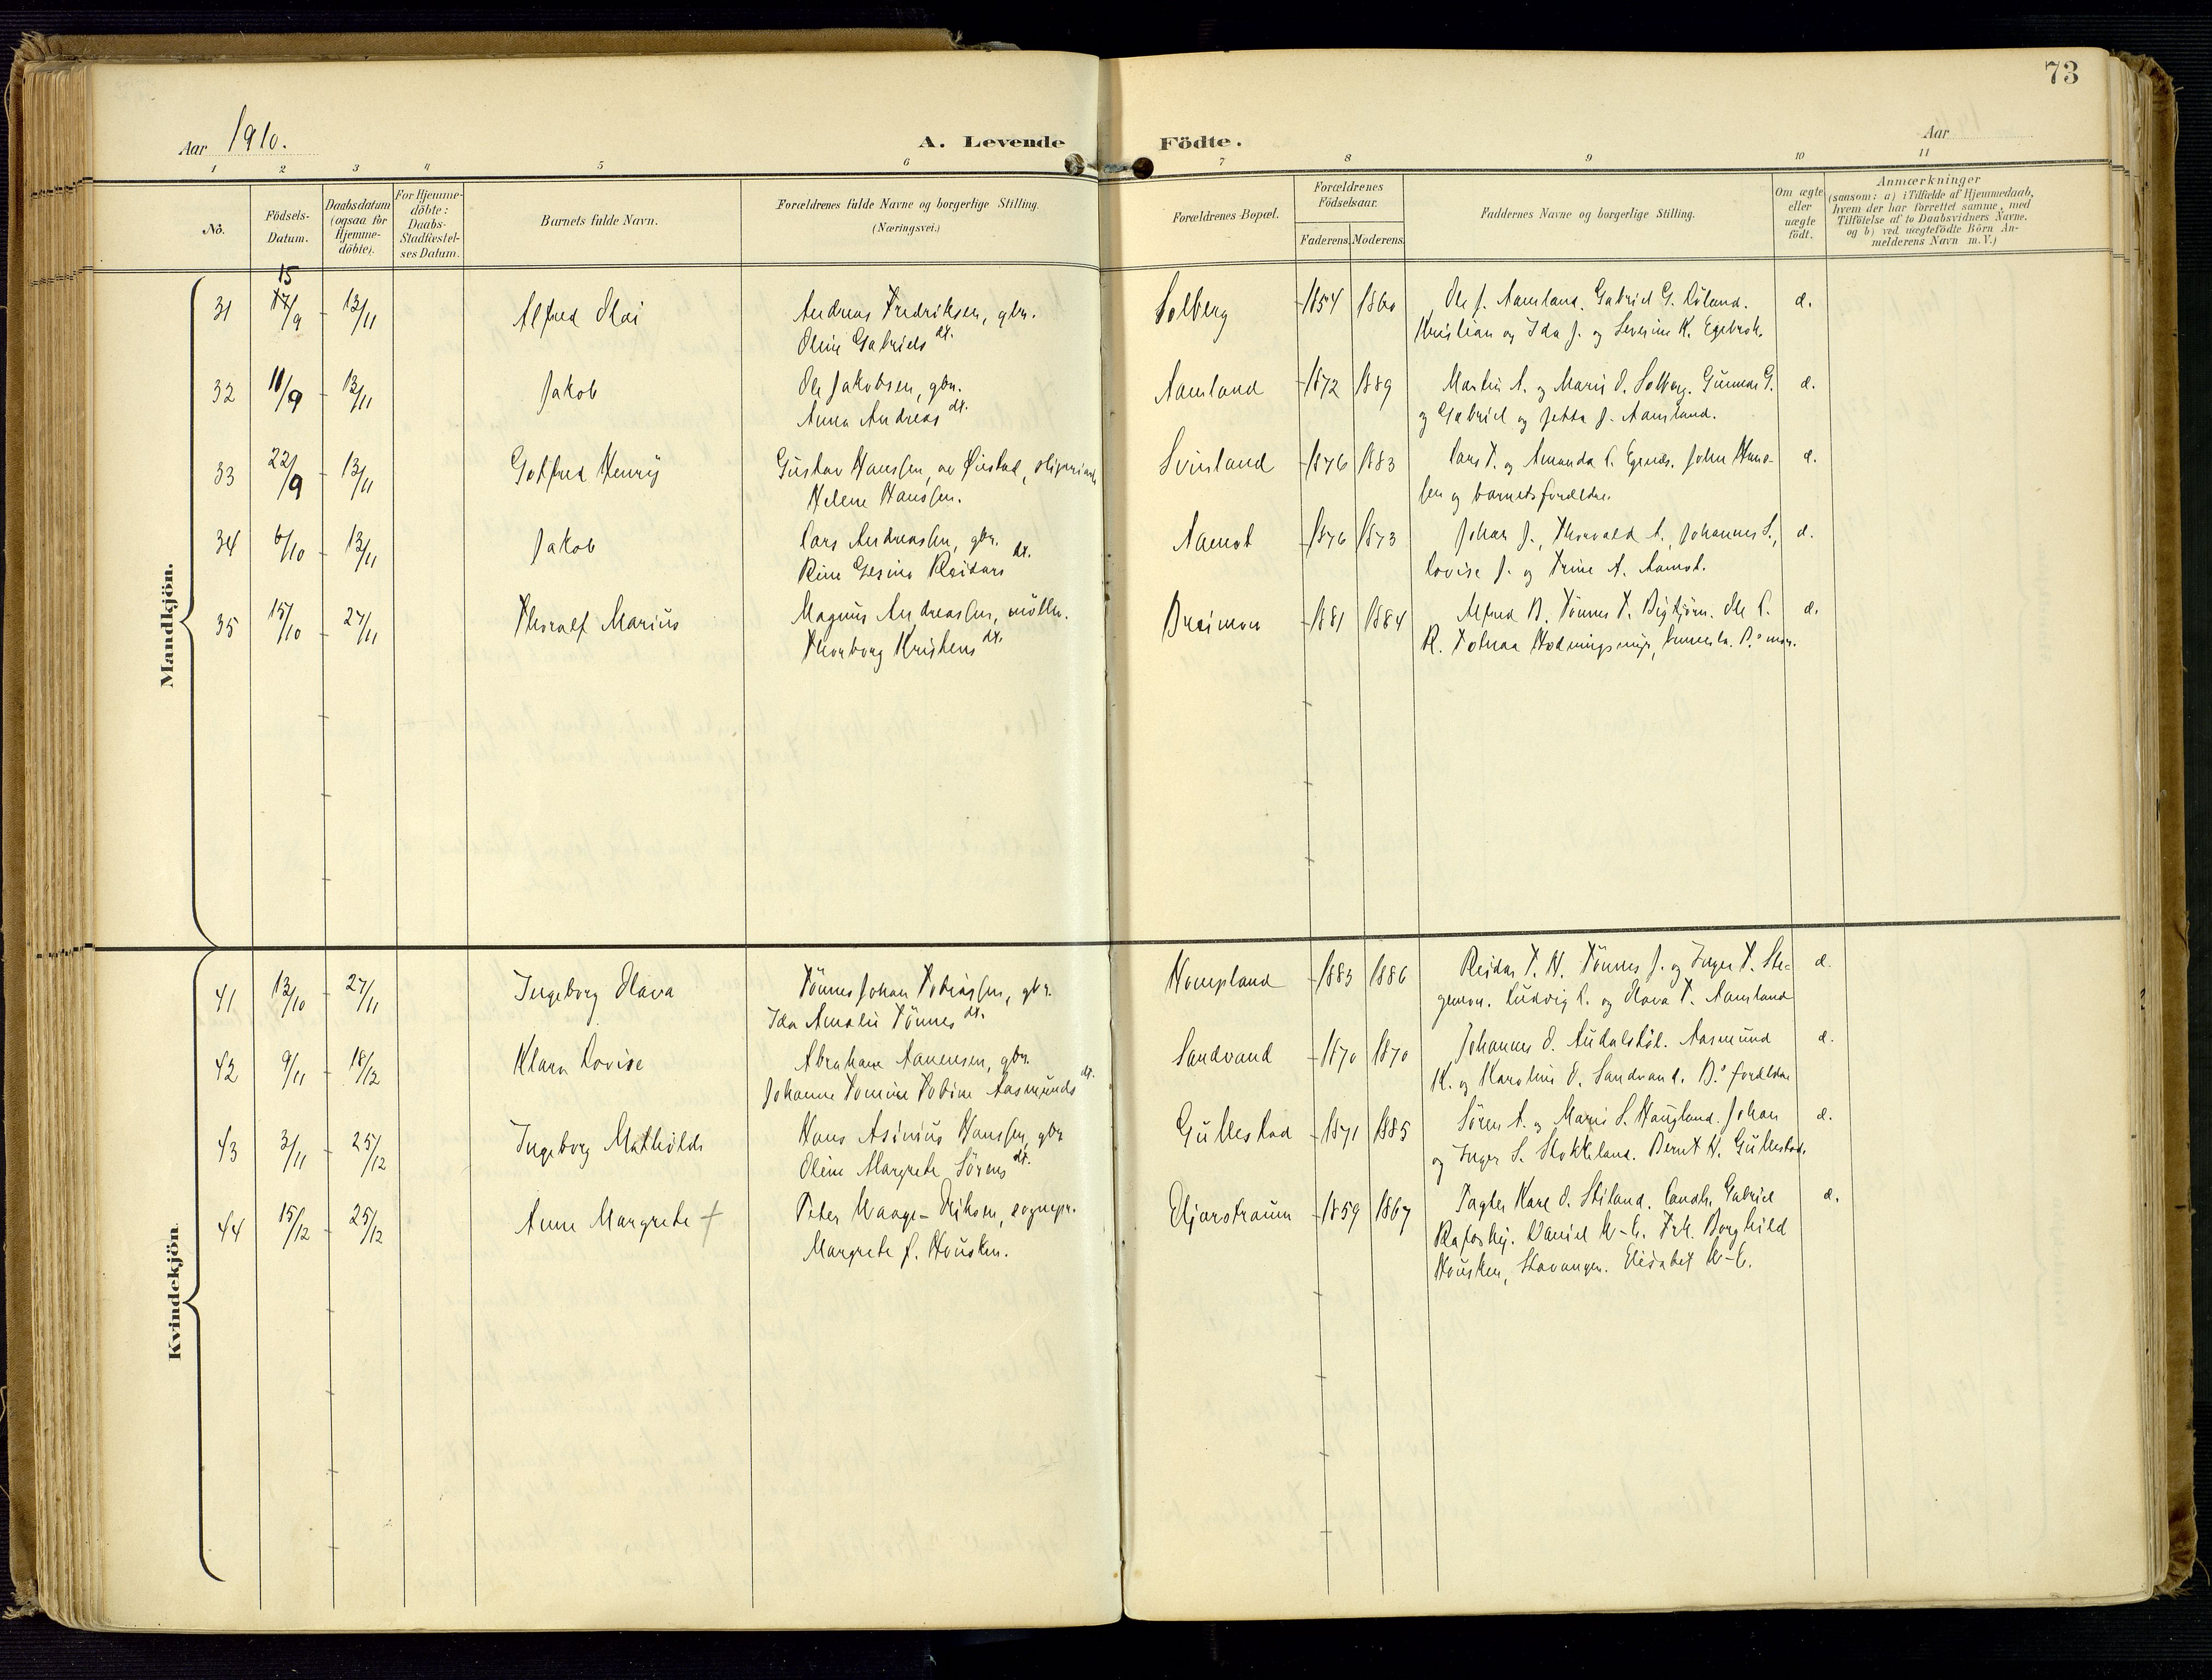 73
Aar 1910.
A. Levende Födte.
Aar
1 2 3 4 5 6 7 8 9 10 11
No.
Födsels-Datum.
Daabsdatum (ogsaa for Hjemme-döbte).
For Hjemme-döbte: Daabs-Stadfæstel-ses Datum.
Barnets fulde Navn.
Forældrenes fulde Navne og borgerlige Stilling. (Næringsvei.)
Forældrenes Bopæl.
Forældrenes Födselsaar.
Faderens. Moderens.
Faddernes Navne og borgerlige Stilling.
Om ægte eller uægte födt.
Anmærkninger
(saasom: a) i Tilfælde af Hjemmedaab,
hvem der har forrettet samme, med
Tilföielse af to Daabsvidners Navne.
og b) ved uægtefödte Börn An-
melderens Navn m. V.)
Mandkjön.
15
31 17/9 13/11 Alfred Olai Andreas Fredriksen, gbr. Solberg 1854 1860 Ole J. Aamland. Gabriel G. Röland. æ.
Oline Gabriels dt. Kristian og Ida J. og Severine K. Egebrok.
32 11/9 13/11 Jakob Ole Jakobsen, gbr. Aamland 1872 1889 Martin A. og Marie O. Solberg. Gunnar G. æ.
Anna Andreas dt. og Gabriel og Jetta J. Aamland.
33 22/9 13/11 Gotfred Henry Gustav Hanssen, av Öiestad, Svinland 1876 1883 Lars T. og Amanda L. Egenæs. John Hans- æ.
Helene Hanssen. sen og barnets forældre.
34 6/10 13/11 Jakob Lars Andreassen, gbr. Aamot 1876 1873 Johan J., Thorvald A., Johannes S., æ.
Rine Gesine Reidars dt. Lovise J. og Trine A. Aamot.
35 15/10 27/11 Thoralf Marius Magnus Andreassen, möller. Breimon 1881 1884 Alfred B. Tönnes T. Ole L. æ.
Thorborg Kristens dt. R. B.s mor.
Kvindekjön.
41 13/10 27/11 Ingeborg Olava Tönnes Johan Tobiassen, gbr. Hompland 1883 1886 Reidar T. H. Tönnes J. og Inger T. Ste- æ.
Ida Amalie Tönnes dt. gemon. Ludvig L. og Olava T. Aamland
42 9/11 18/12 Klara Lovise Abraham Aanensen, gbr. Sandvand 1870 1870 Johannes O. Audalstöl. Aasmund æ.
Johanne Tomine Tobine Aasmunds dt. K. og Karoline O. Sandvand. B.s forældre
43 3/11 25/12 Ingeborg Mathilde Hans Asinius Hanssen, gbr Gullestad 1871 1885 Sören A. og Marie S. Haugland. Johan æ.
Oline Margrete Sörens dt. og Inger S. Stokkeland. Bernt H. Gullestad.
44 15/12 25/12 Anne Margrete + Peter Waage-Eriksen, sognepr. 1859 1867 Fogter Karl O. Stiland. Gabriel æ.
Margrete f. Housken. Daniel W-E. Frk. Borghild
Housken, Stavanger. Elisabet W-E.